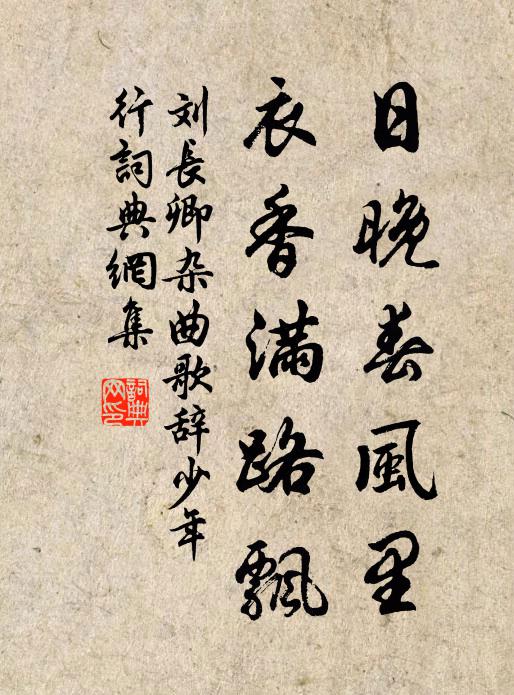 日晚春風里
衣香满路飘
刘長卿杂曲歌辞少年
行詞典網集
詞典
网印